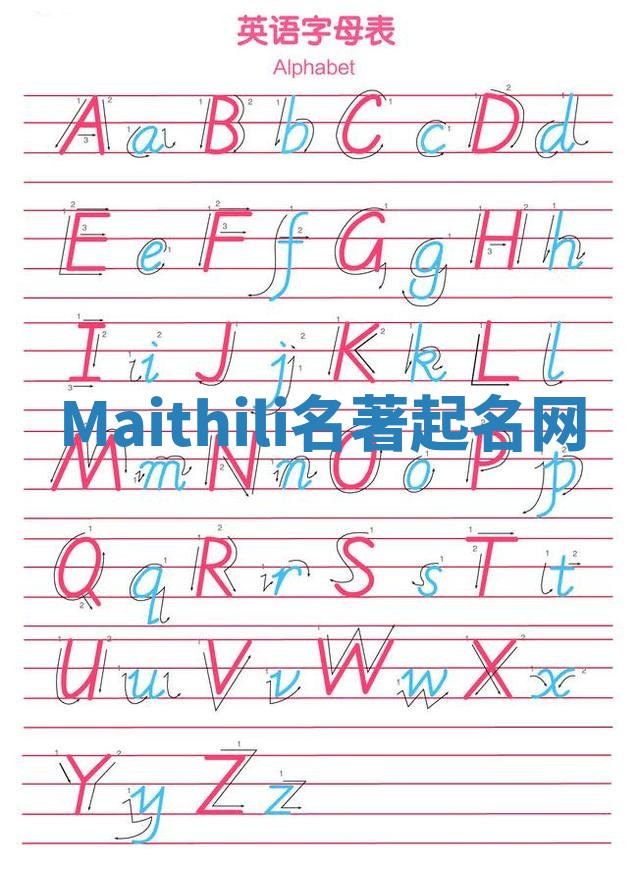 英语字母表
Alphabet
A a B b C c D d
E e F f G g H h
I i J j K k L l
Maithili名著起名网
M m N n O o P p
Q q R r S s T t
U u V v W w X x
Y y Z z